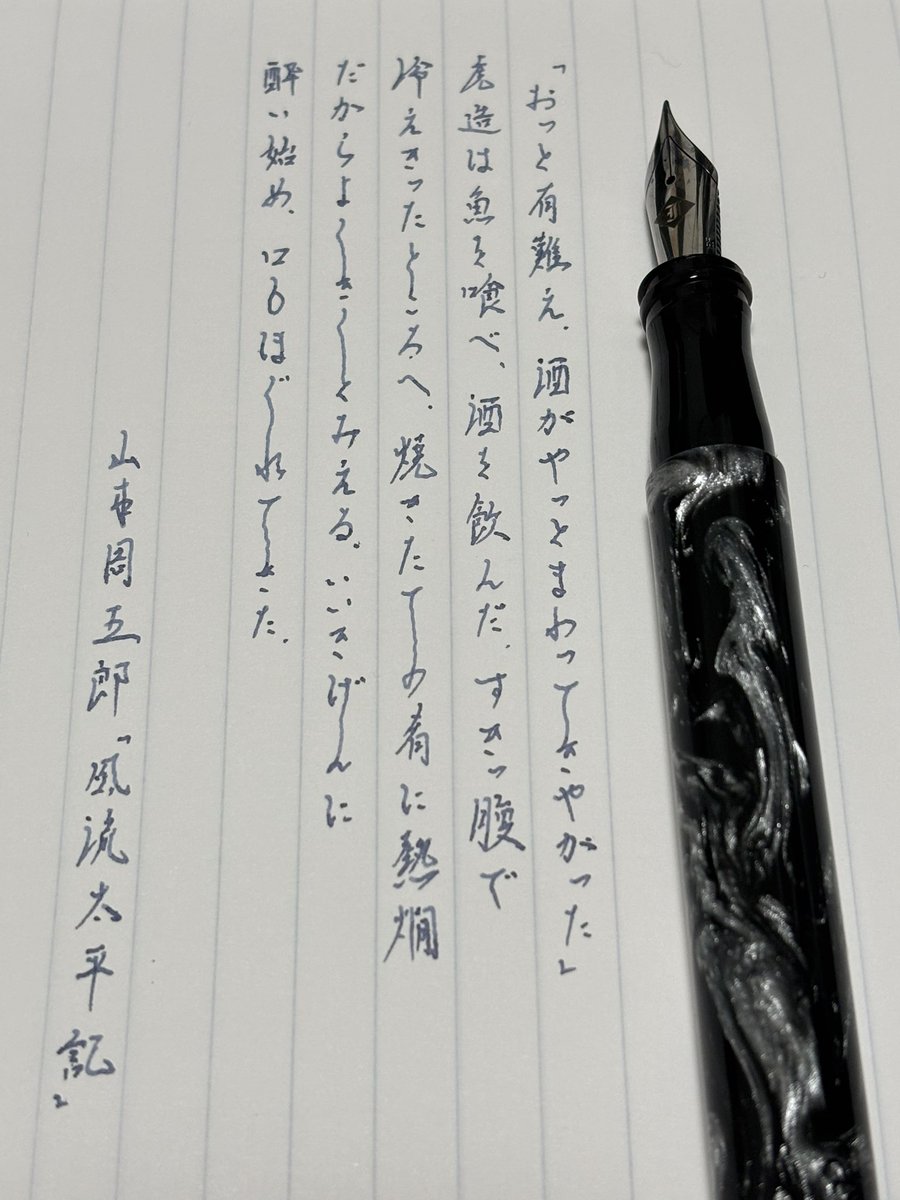 「おっと有難え、酒がやっとまわってきやがった」
虎造は魚を喰べ、酒を飲んだ。すきっ腹で
冷えきったところへ、焼きたての肴に熱燗
だからよくきくとみえる。いいきげんに
酔い始め、口もほぐれてきた。
山本周五郎「風流太平記」